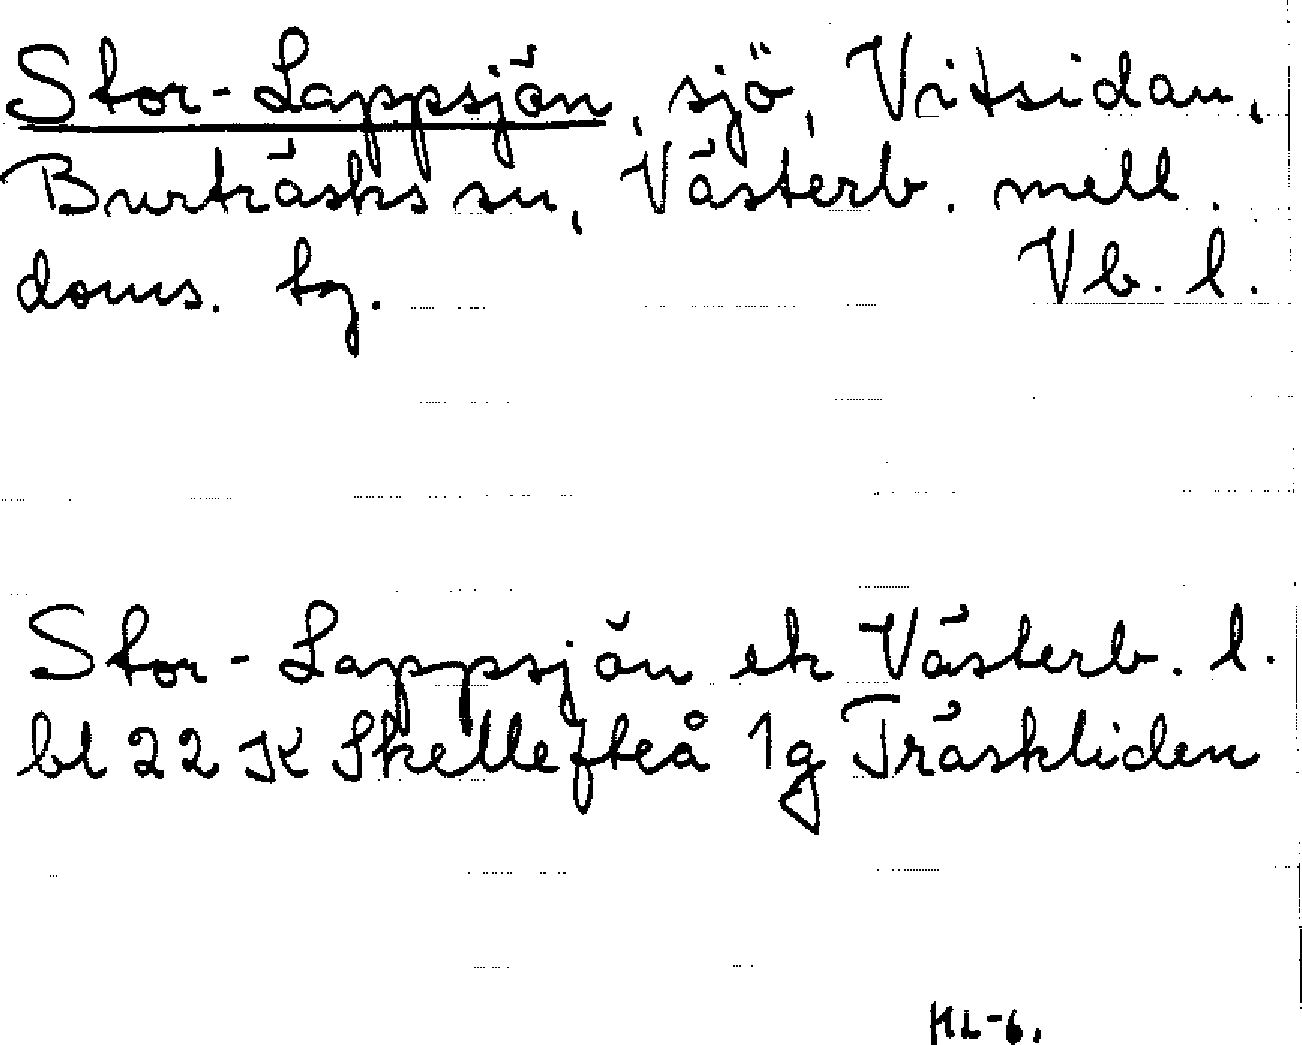 Stor-Lappsjön, sjö, Vitsidan,
Burträsks sn, Västerb. mell.
doms. tg. Vb. l.
Stor-Lappsjön ek Västerb. l.
bl 22 K Skellefteå 1g Träskliden
HL-6.